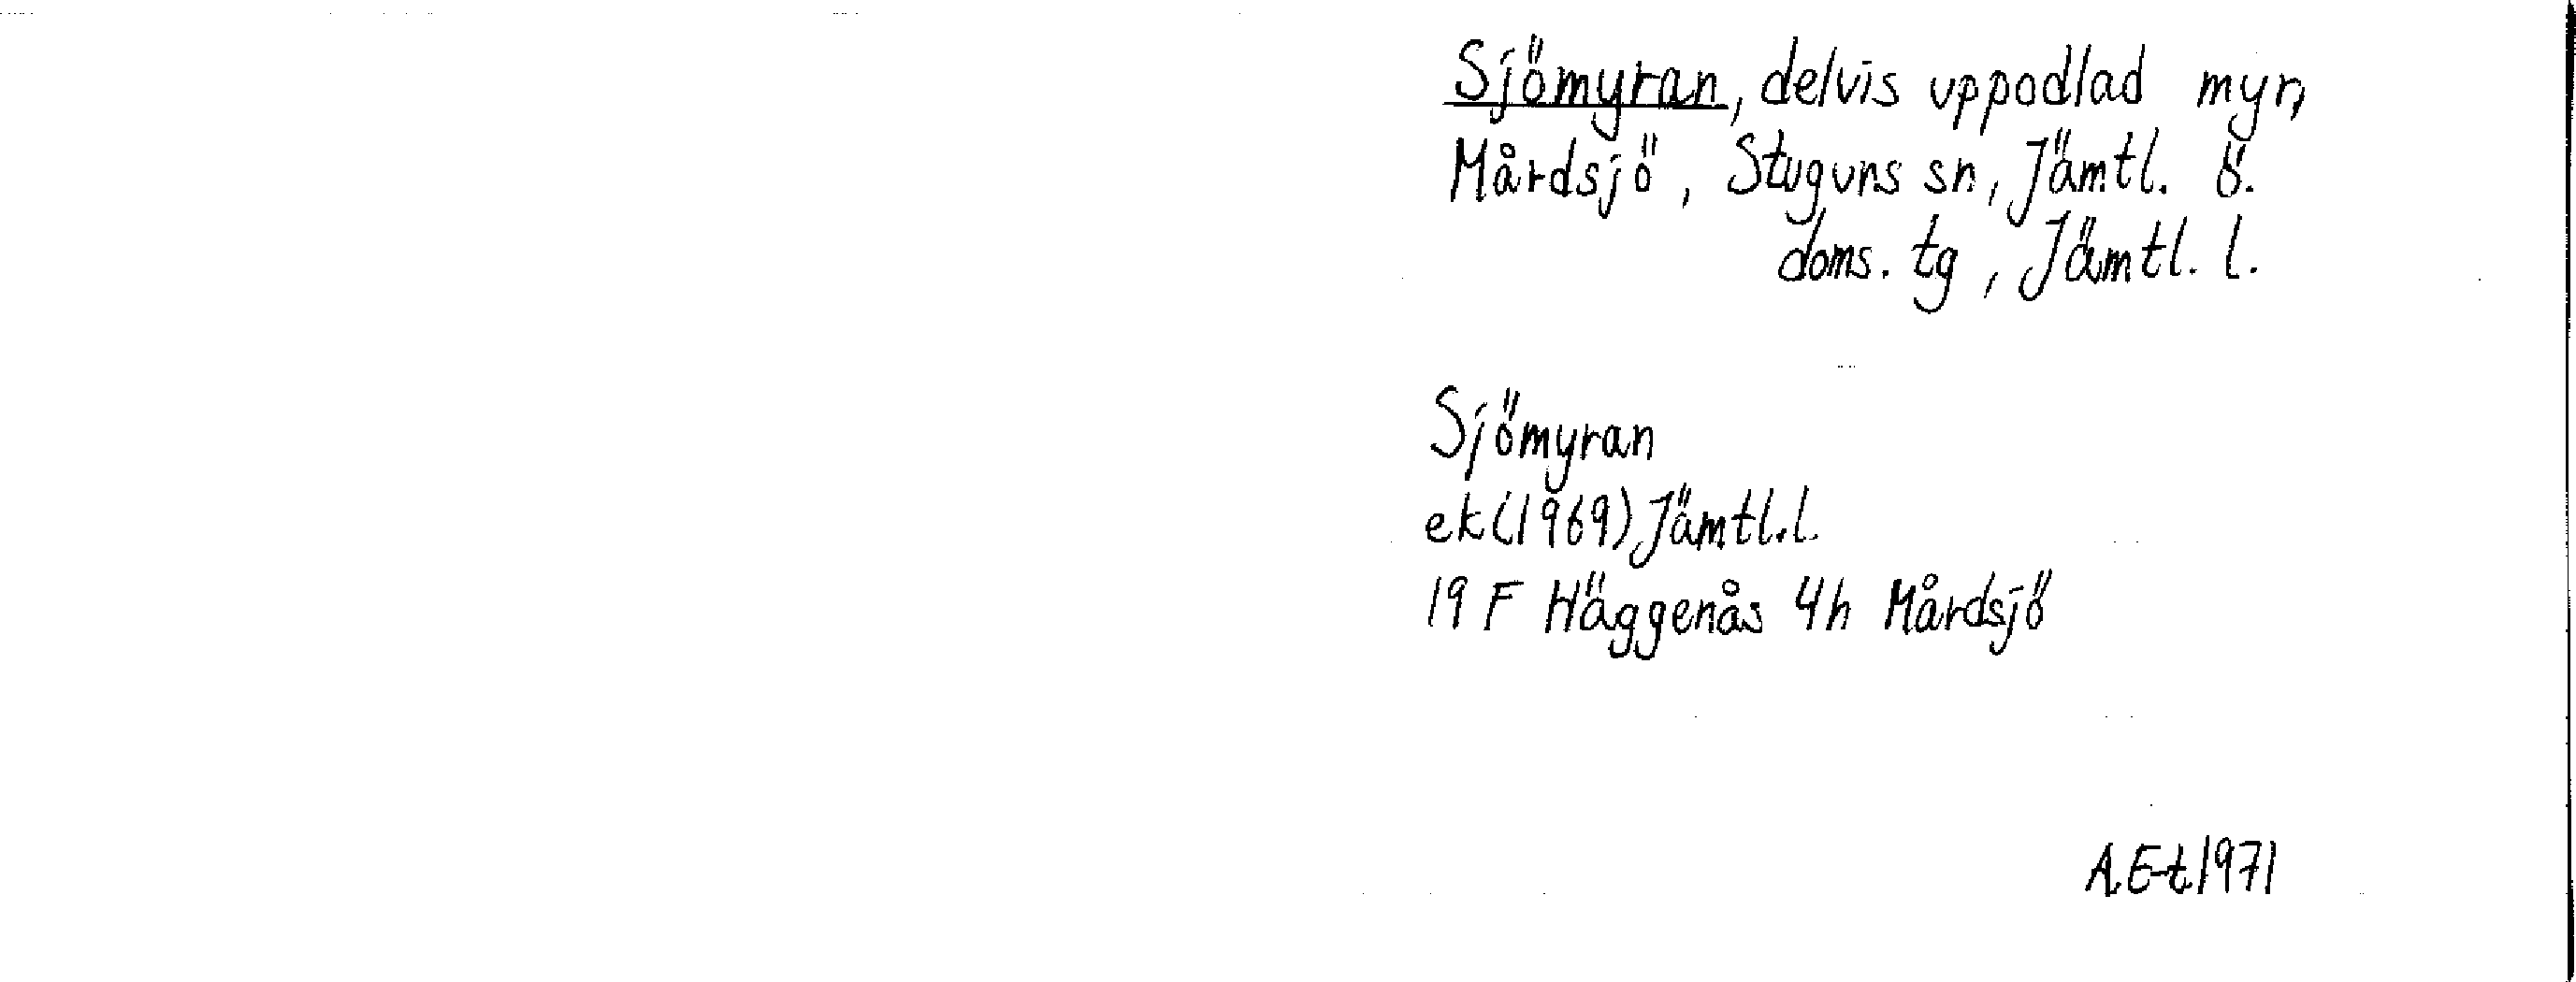 Sjömyran, delvis uppodlad myr,
Mårdsjö, Stuguns sn, Jämtl. ö.
doms. tg, Jämtl. l.
Sjömyran
ek(1969) Jämtl.l.
19 F Häggenås 4h Mårdsjö
A.E-t 1971